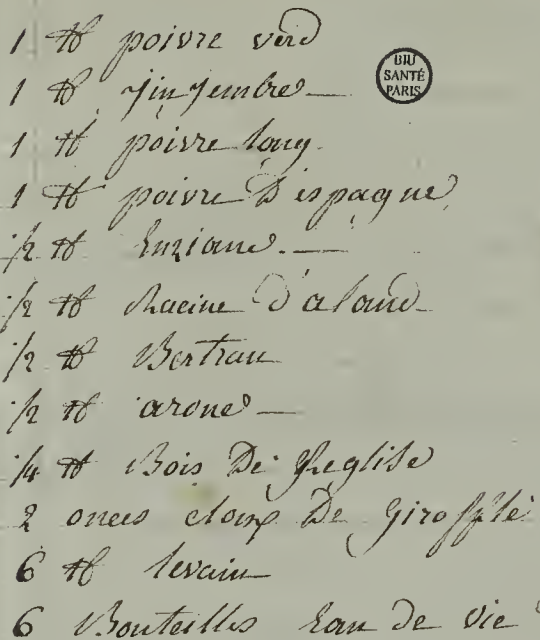 1 ℔ poivre verd
1 ℔ jinjembre
1 ℔ poivre long
1 ℔ poivre D'espagne
1/2 ℔ Enziane
1/2 ℔ Racine d'aland
1/2 ℔ Bertran
1/2 ℔ arone
1/4 ℔ Bois De Reglise
2 onces cloux De Girofflé
6 ℔ levain
6 Bouteilles Eau De vie
BIU
SANTÉ
PARIS